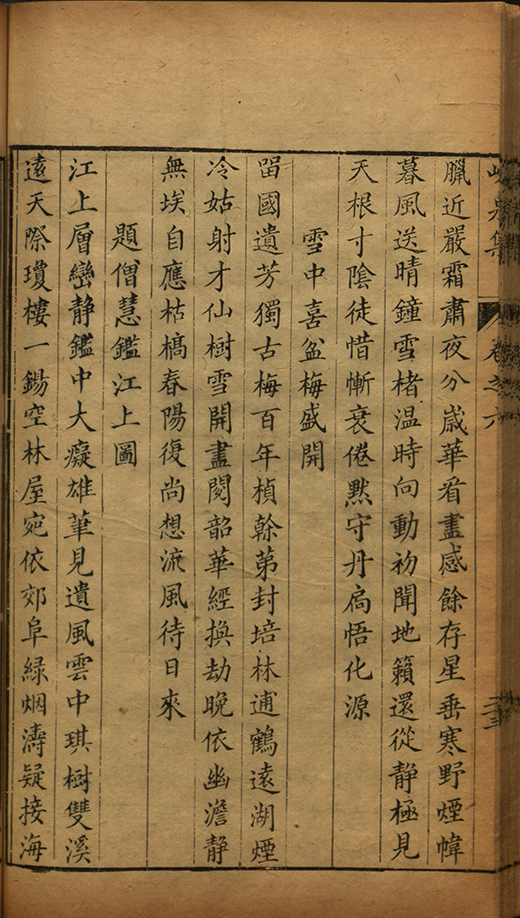 峴泉集 卷之六
臘近嚴霜肅夜分歳華看盡感餘存星垂寒野煙幃
暮風送晴鐘雪楮温時向動初聞地籟還從静極見
天根寸陰徒惜慚衰倦黙守丹扃悟化源
雪中喜盆梅盛開
畱國遺芳獨古梅百年楨榦苐封培林逋鶴逺湖煙
冷姑射才仙樹雪開盡閲韶華經換劫晚依幽澹静
無埃自應枯槁春陽復尚想流風待日來
題僧慧鑑江上圖
江上層巒静鑑中大癡雄筆見遺風雲中琪樹雙溪
逺天際瓊樓一錫空林屋宛依郊阜緑烟濤疑接海